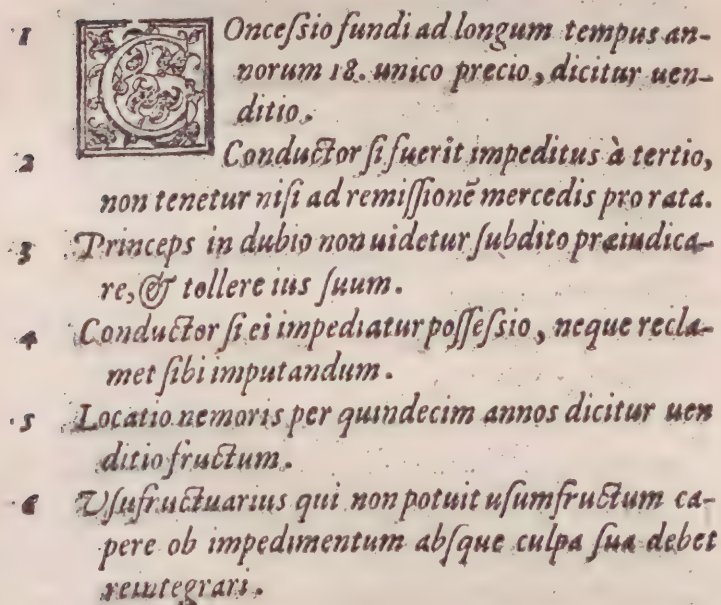 1 COnceſsio fundi ad longum tempus an-
norum 18. unico precio, dicitur uen-
ditio.
2 Conductor ſi fuerit impeditus à tertio,
non tenetur niſi ad remiſſionē mercedis pro rata.
3 Princeps in dubio non uidetur ſubdito præiudica-
re, & tollere ius ſuum.
4 Conductor ſi ei impediatur poſſeſsio, neque recla-
met ſibi imputandum.
5 Locatio nemoris per quindecim annos dicitur uen
ditio fructum.
6 Vſufructuarius qui non potuit uſumfructum ca-
pere ob impedimentum abſque culpa ſua debet
reintegrari.